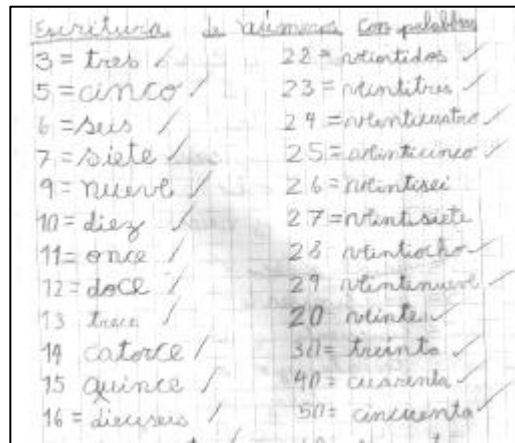 Escritura de números con palabras
3 = tres
5 = cinco
6 = seis
7 = siete
9 = nueve
10 = diez
11 = once
12 = doce
13 trece
14 catorce
15 quince
16 = dieciseis
22 = veintidos
23 = veintitres
24 = veinticuatro
25 = veinticinco
26 = veintisei
27 = veintisiete
28 = veintiocho
29 veintinueve
20 veinte
30 = treinta
40 = cuarenta
50 = cincuenta